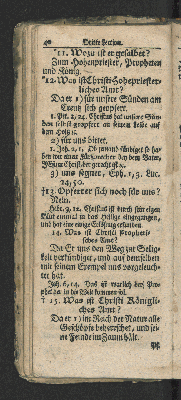 40 Dritte Section.
*11. Wozu ist er gesalbet?
Zum Hohenpriester, Propheten
und König.
*12. Was ist Christi Hohepriester-
liches Amt?
Da er 1) für unsere Sünden am
Creutz sich geopfert.
1. Pet. 2, 24. Christus hat unsere Sün-
den selbst geopfert an seinem Leibe auf
dem Holz.
2) für uns bittet.
1. Joh. 2, 1. Ob jemand sündiget so ha-
ben wir einen Fürsprecher bey dem Vater,
JEsum Christ der gerecht ist.
3) uns segnet, Eph. 1, 3. Luc.
24, 50.
†13. Opfferet sich noch für uns?
Nein.
Hebr. 9, 12. Christus ist durch sein eigen
Blut einmal in das Heilige eingegangen,
und hat eine ewige Erlösung erfunden.
14. Was ist Christi Prophetis-
sches Amt?
Da Er uns den Weg zur Selig-
keit verkündiget, und auf denselben
mit seinem Exempel uns vorgeleuch-
tet hat.
Joh. 6, 14. Das ist warlich der Pro-
phet der in die Welt kommen soll.
† 15. Was ist Christi Königli-
ches Amt?
Da er 1) im Reich der Natur alle
Geschöpfe beherrschet, und sei-
ne Feinde im Zaum hält.